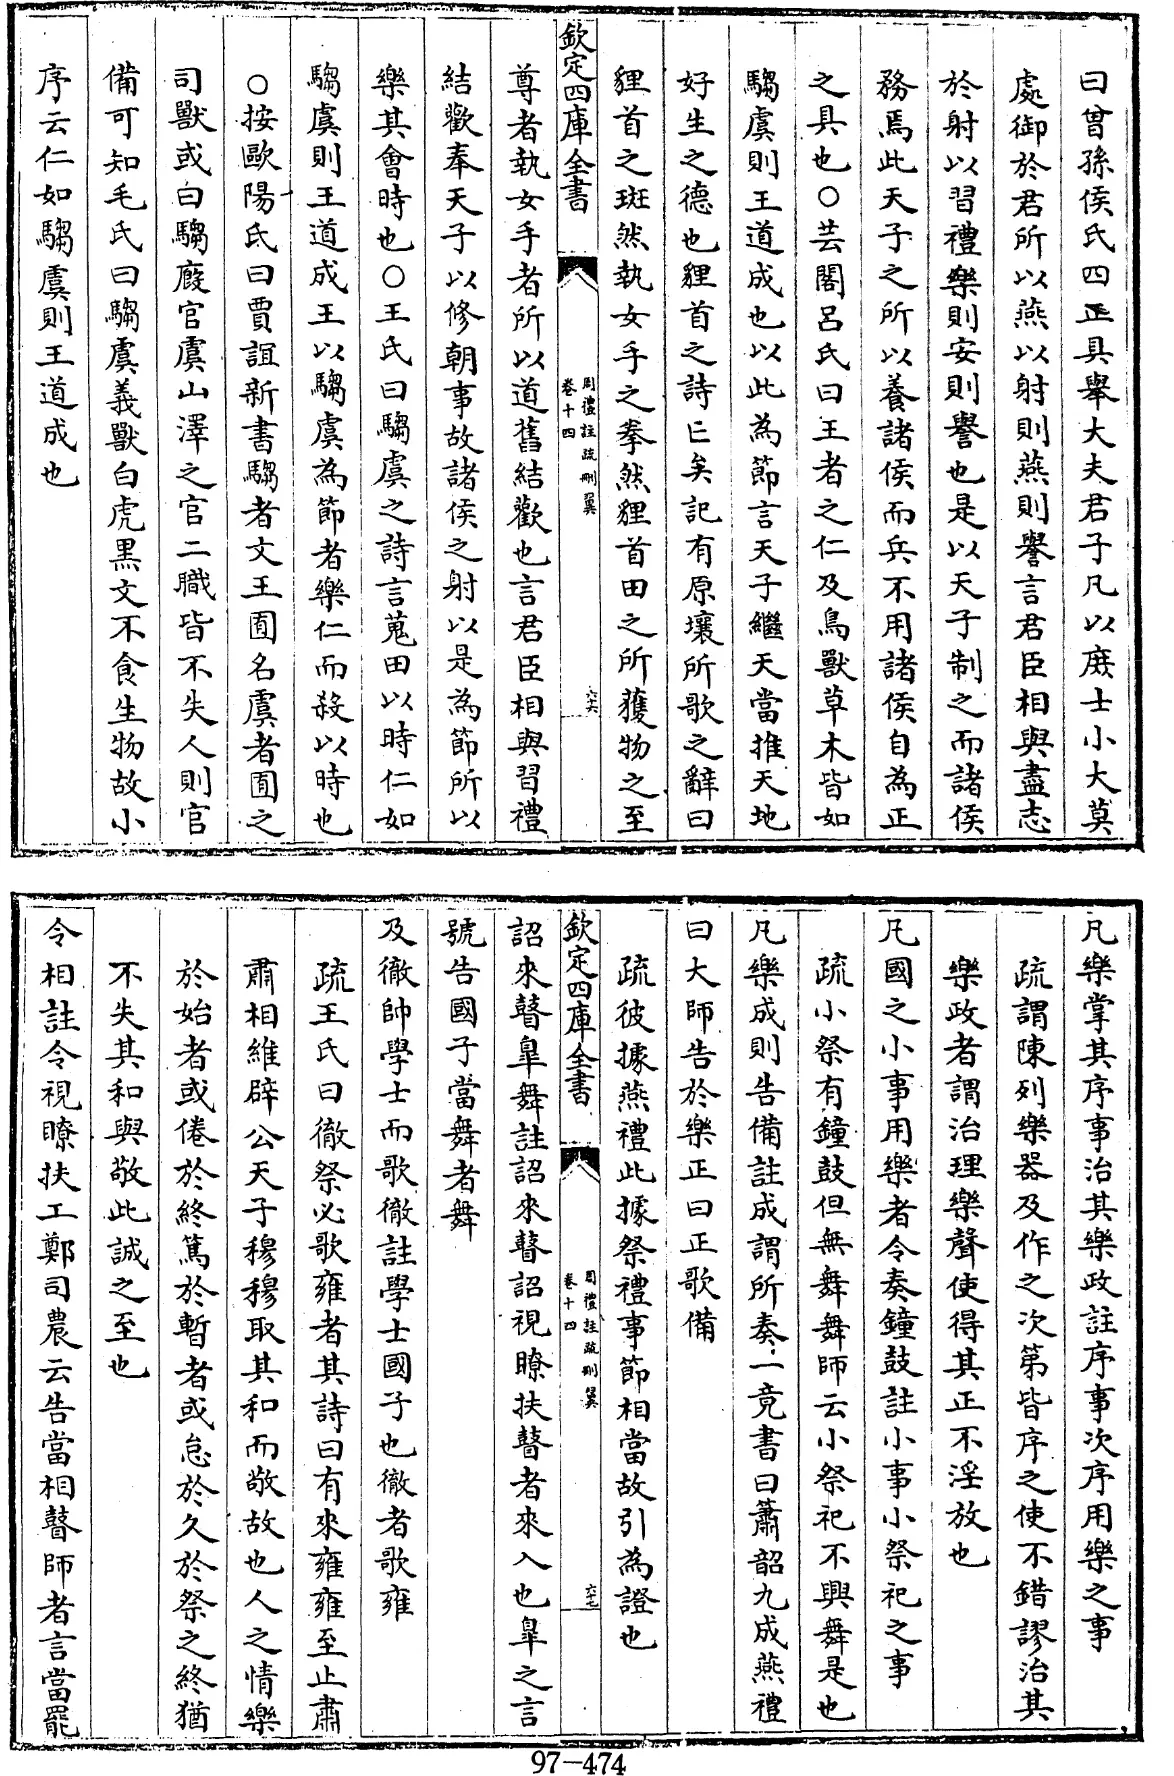 曰曾孫侯氏四正具舉大夫君子凡以庶士小大莫
處御於君所以燕以射則燕則譽言君臣相與盡志
於射以習禮樂則安則譽也是以天子制之而諸侯
務焉此天子之所以養諸侯而兵不用諸侯自為正
之具也○芸閣呂氏曰王者之仁及鳥獸草木皆如
騶虞則王道成也以此為節言天子繼天當推天地
好生之德也貍首之詩亡矣記有原壤所歌之辭曰
貍首之斑然執女手之拳然貍首田之所獲物之至
欽定四庫全書
周禮註疏刪翼
卷十四
六六
尊者執女手者所以道舊結歡也言君臣相與習禮
結歡奉天子以修朝事故諸侯之射以是為節所以
樂其會時也○王氏曰騶虞之詩言蒐田以時仁如
騶虞則王道成王以騶虞為節者樂仁而殺以時也
○按歐陽氏曰賈誼新書騶者文王囿名虞者囿之
司獸或曰騶廄官虞山澤之官二職皆不失人則官
備可知毛氏曰騶虞義獸白虎黑文不食生物故小
序云仁如騶虞則王道成也
凡樂掌其序事治其樂政註序事次序用樂之事
疏謂陳列樂器及作之次第皆序之使不錯謬治其
樂政者謂治理樂聲使得其正不淫放也
凡國之小事用樂者令奏鐘鼓註小事小祭祀之事
疏小祭有鐘鼓但無舞舞師云小祭祀不興舞是也
凡樂成則告備註成謂所奏一竟書曰簫韶九成燕禮
曰大師告於樂正曰正歌備
疏彼據燕禮此據祭禮事節相當故引為證也
欽定四庫全書
周禮註疏刪翼
卷十四
六七
詔來瞽臯舞註詔來瞽詔視瞭扶瞽者來入也臯之言
號告國子當舞者舞
及徹帥學士而歌徹註學士國子也徹者歌雍
疏王氏曰徹祭必歌雍者其詩曰有來雍雍至止肅
肅相維辟公天子穆穆取其和而敬故也人之情樂
於始者或倦於終篤於暫者或怠於久於祭之終猶
不失其和與敬此誠之至也
令相註令視瞭扶工鄭司農云告當相瞽師者言當罷
97-474